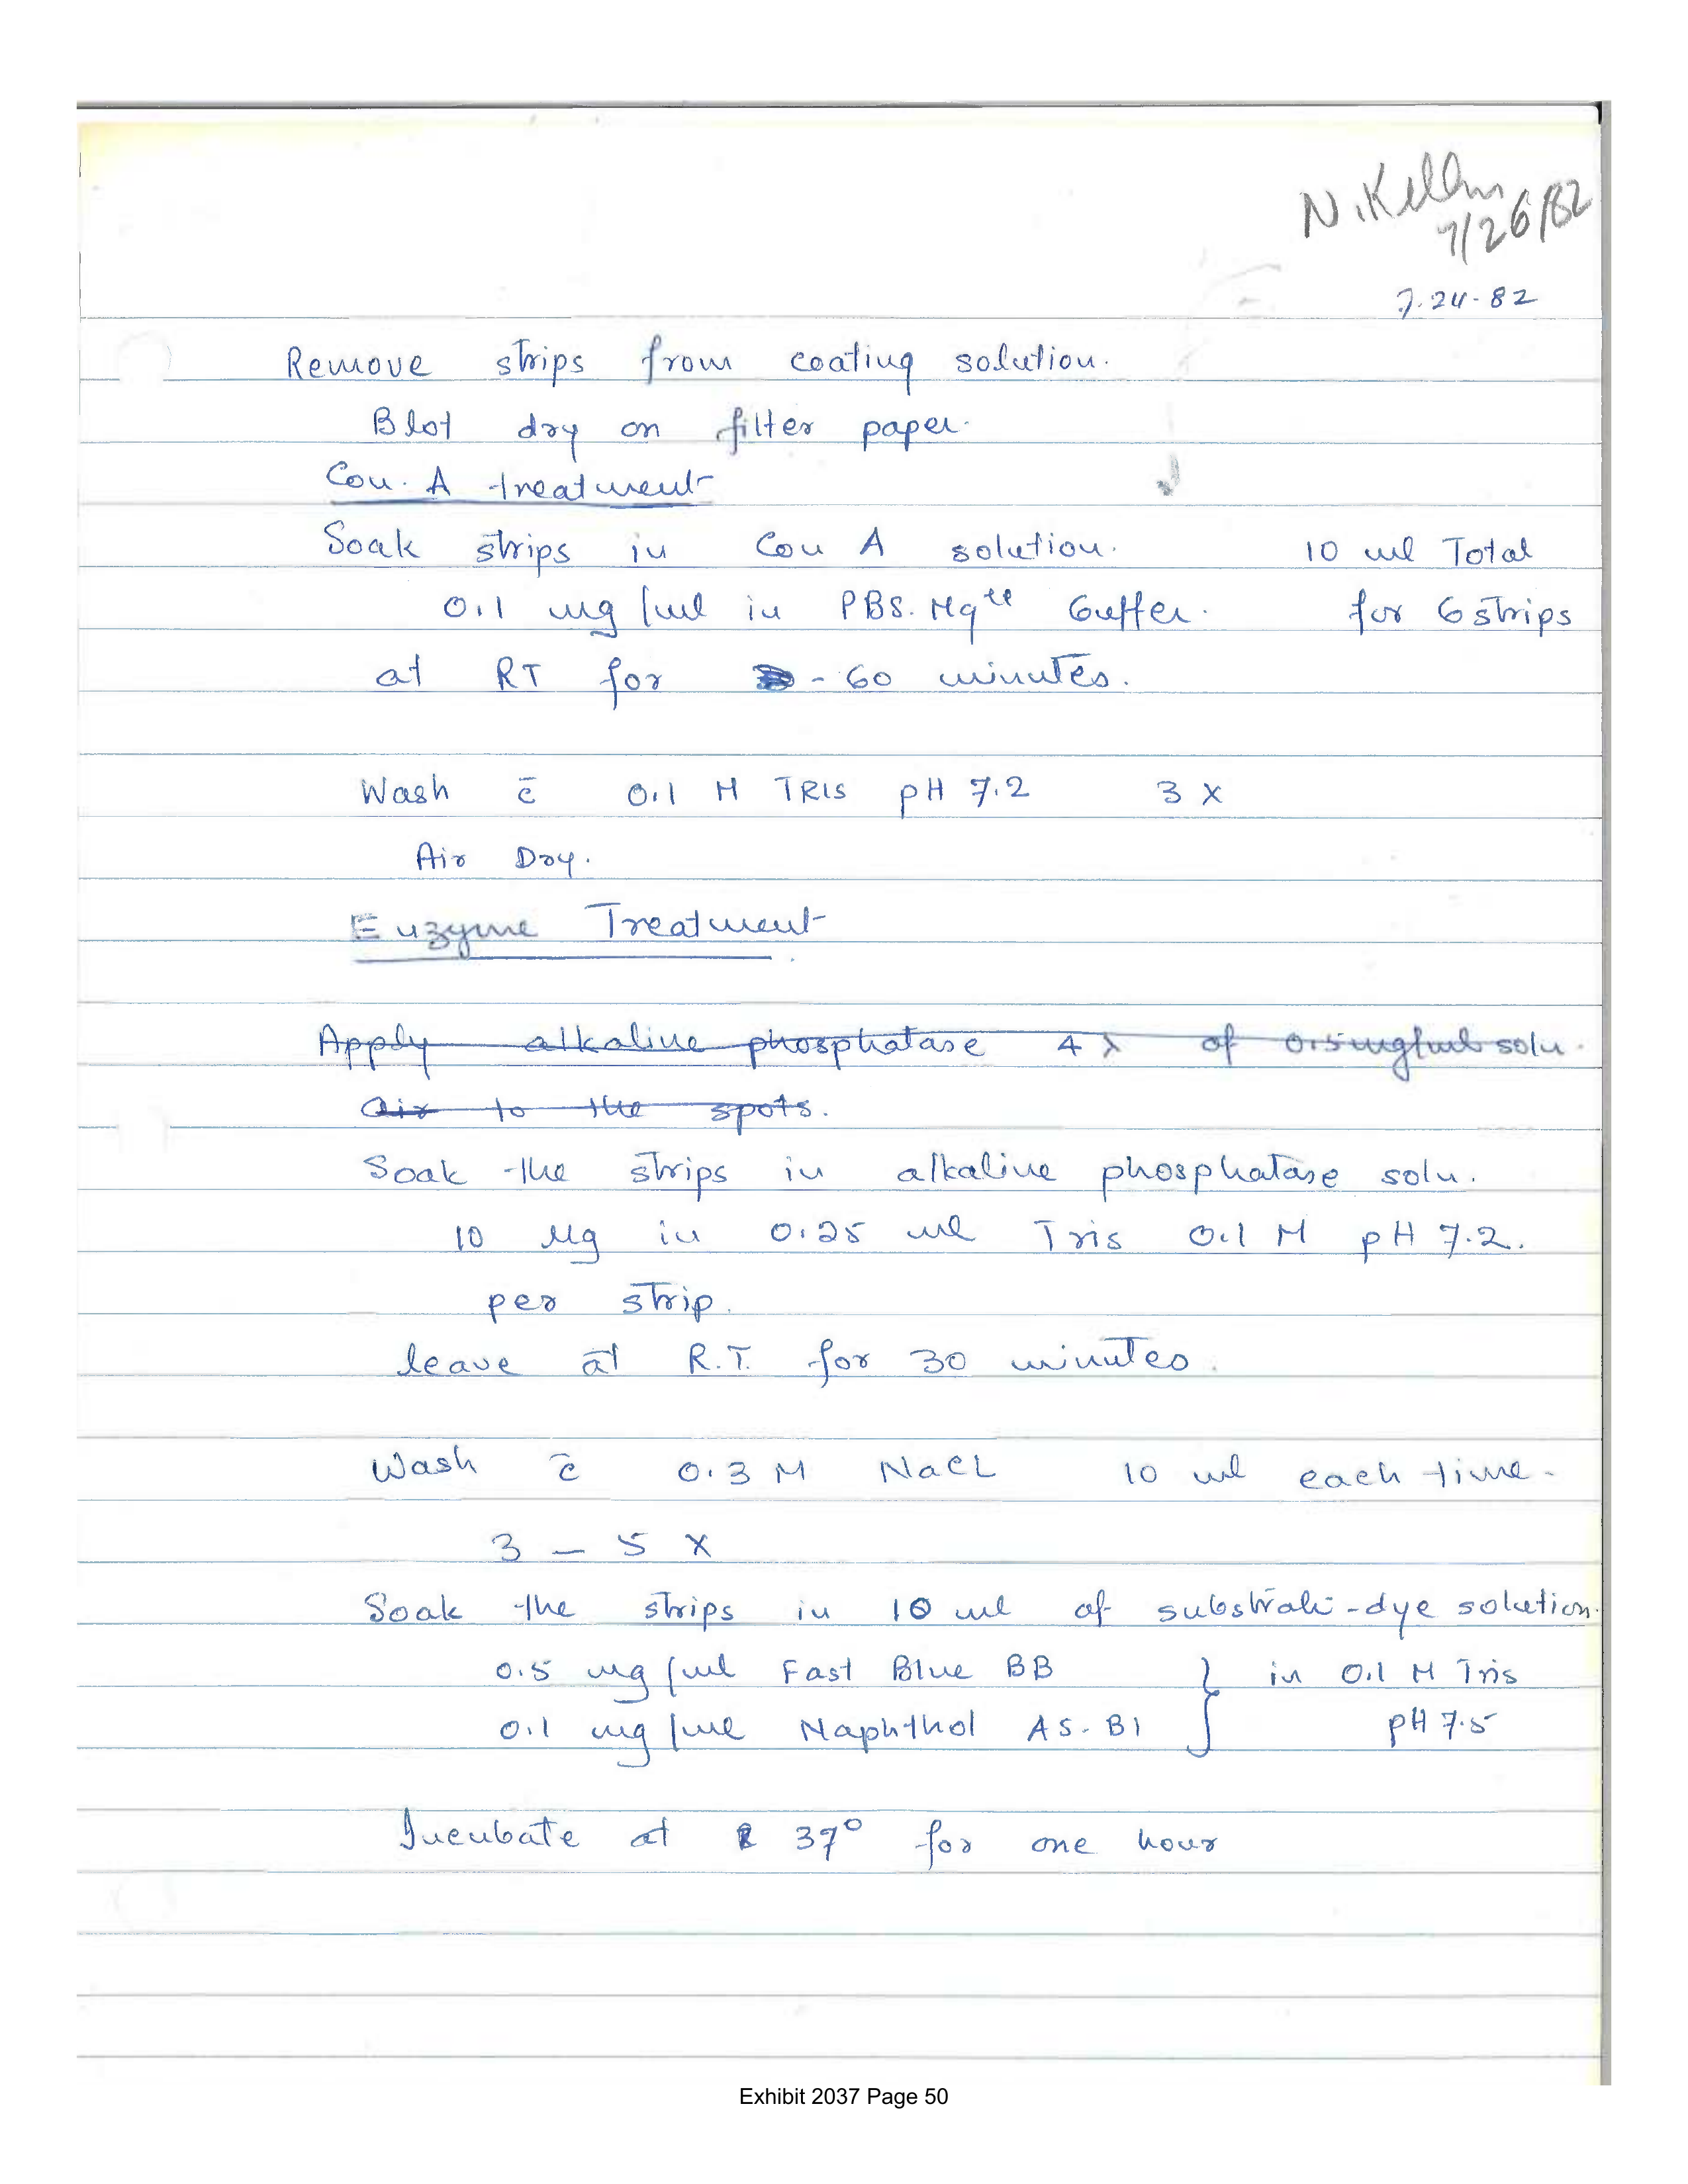 N. Kelln
7/26/82
7.24-82
Remove strips from coating solution.
Blot dry on filter paper.
Con. A treatment
Soak strips in Con A solution. 10 ml Total
0.1 mg/ml in PBS. Mg++ buffer. for 6 strips
at RT for - 60 minutes.
Wash c̄ 0.1 M TRIS pH 7.2 3 X
Air Dry.
Enzyme Treatment
Apply alkaline phosphatase 4 λ of 0.5 mg/ml soln.
air to the spots.
Soak the strips in alkaline phosphatase soln.
10 µg in 0.25 ml Tris 0.1 M pH 7.2.
per strip.
leave at R.T. for 30 minutes.
Wash c̄ 0.3 M NaCL 10 ml each time.
3 – 5 X
Soak the strips in 10 ml of substrate-dye solution.
0.5 mg/ml Fast Blue BB } in 0.1 M Tris
0.1 mg/ml Naphthol AS-BI pH 7.5
Incubate at 37° for one hour
Exhibit 2037 Page 50